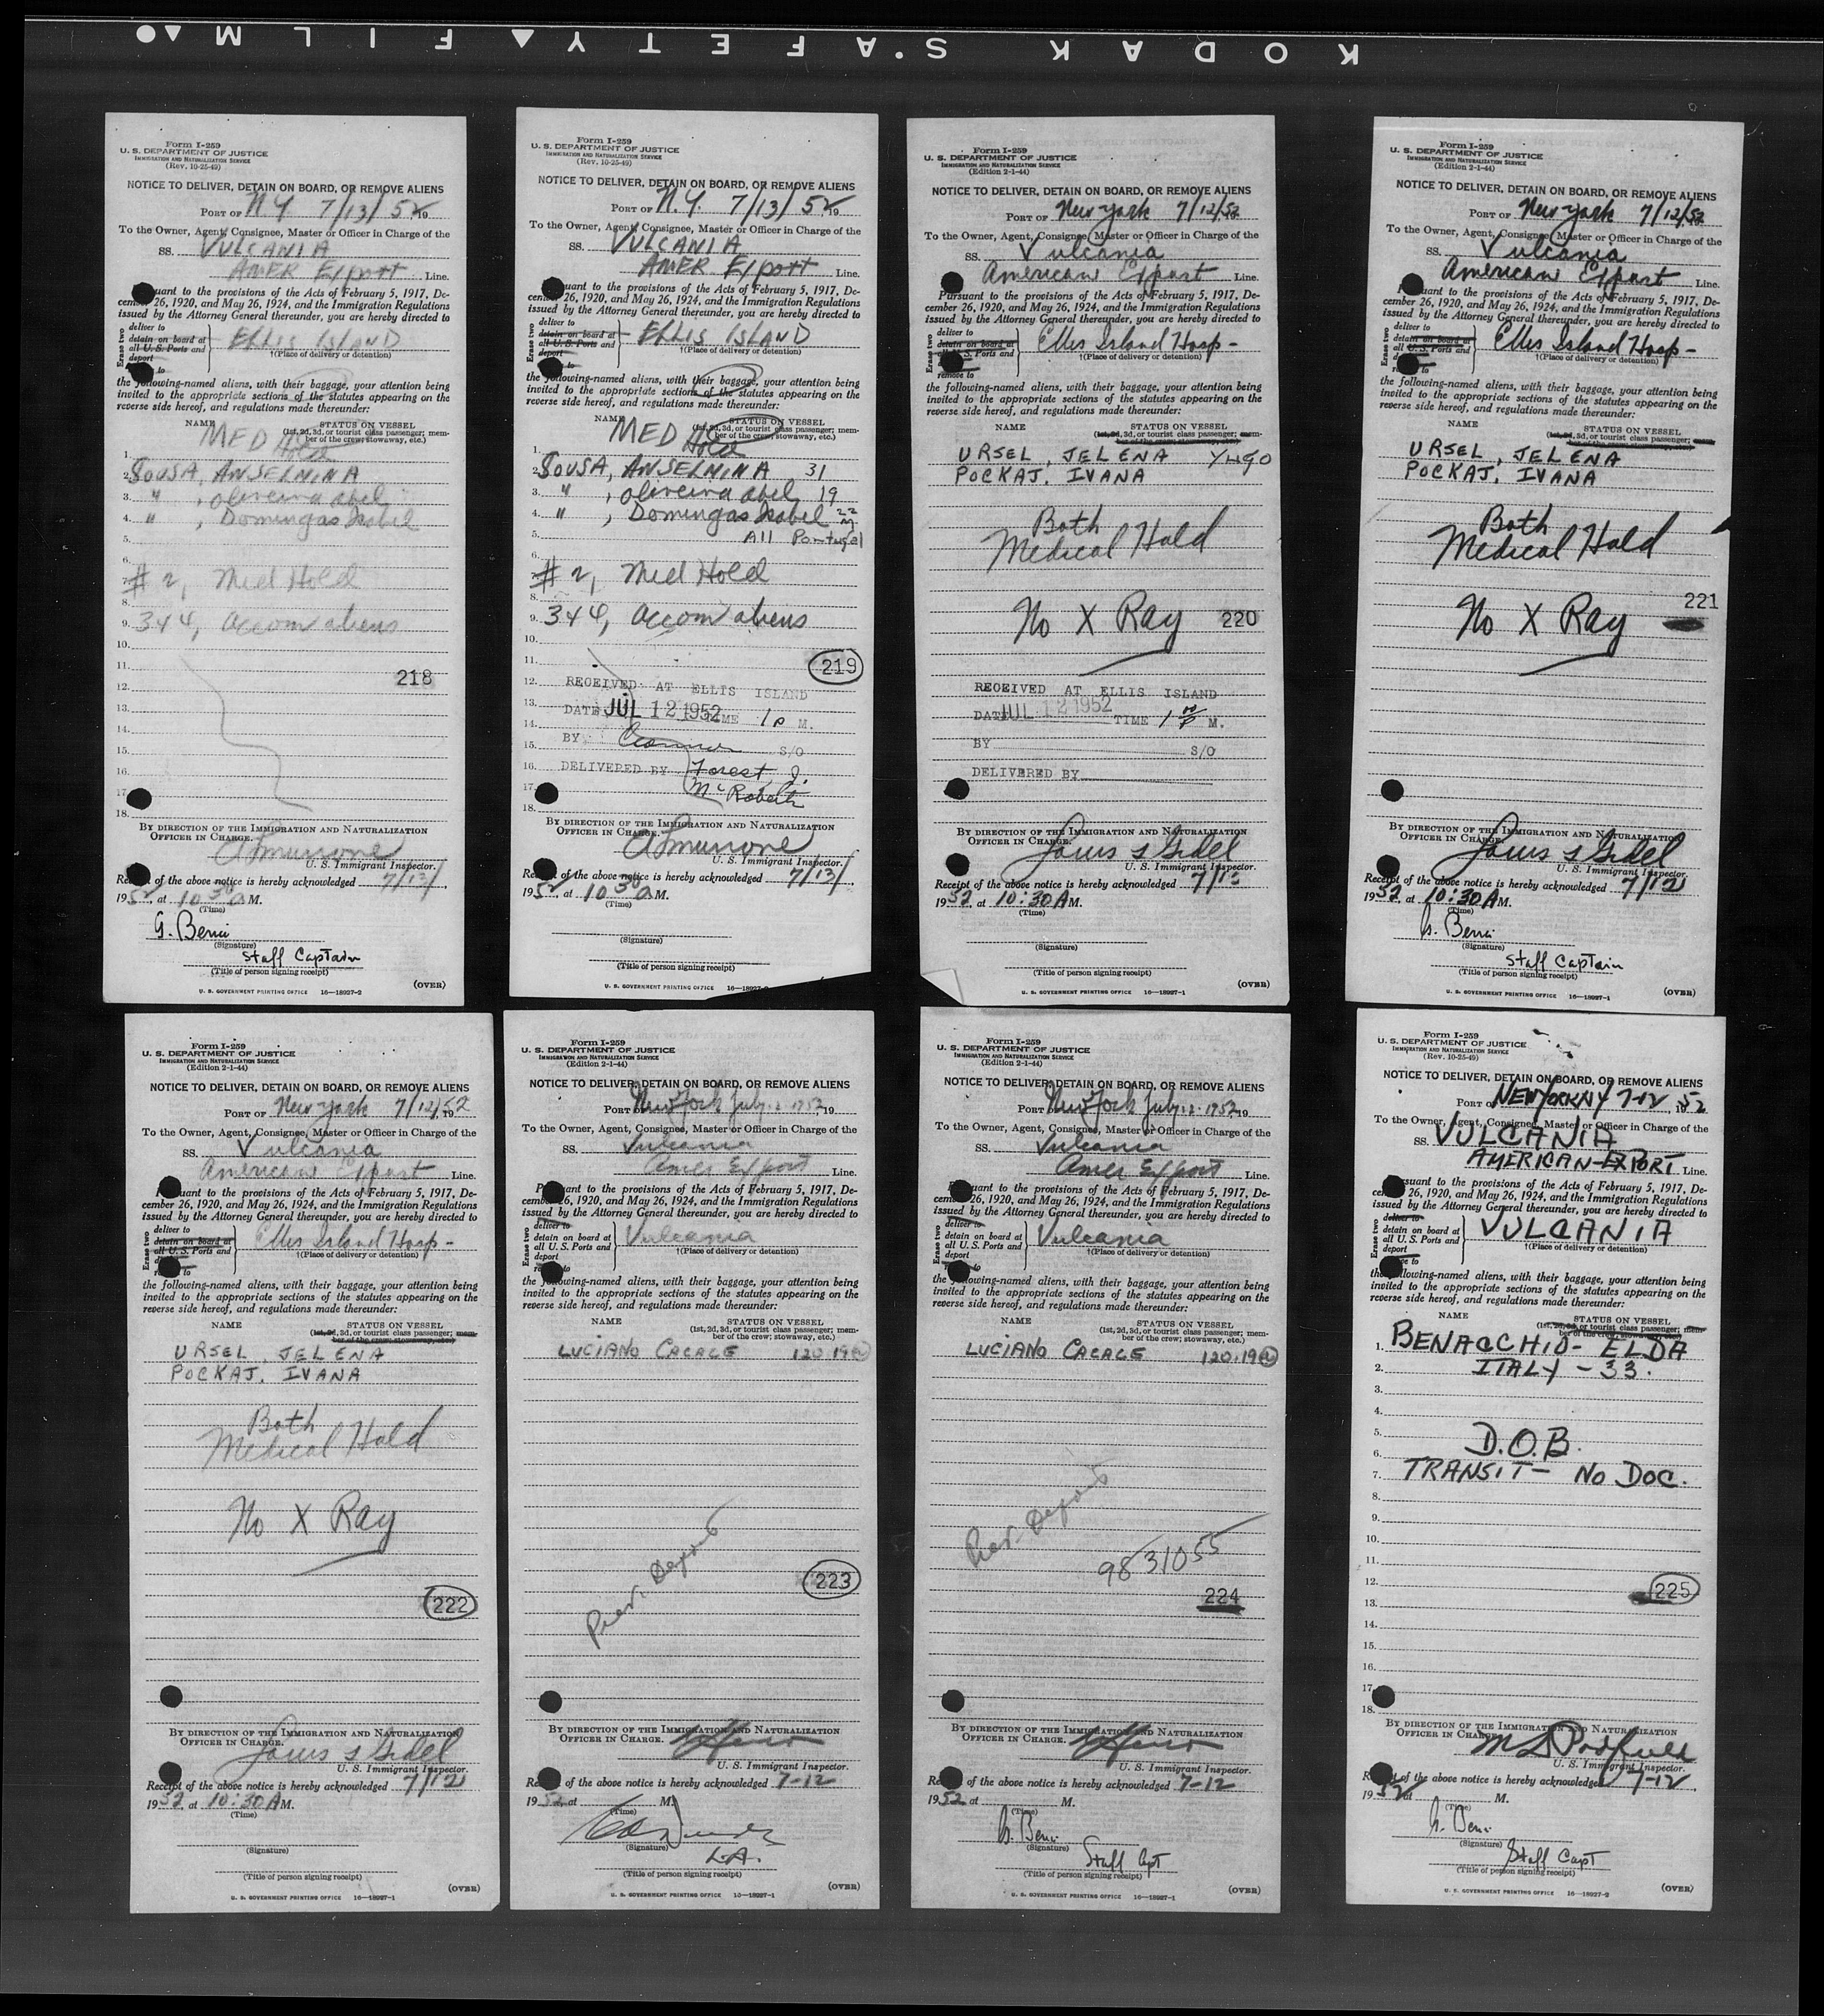 KODAK S·AFETY FILM
Form I-259
U. S. DEPARTMENT OF JUSTICE
IMMIGRATION AND NATURALIZATION SERVICE
(Rev. 10-25-49)
NOTICE TO DELIVER, DETAIN ON BOARD, OR REMOVE ALIENS
PORT OF N Y 7/13/52 19
To the Owner, Agent, Consignee, Master or Officer in Charge of the
SS. VULCANIA
AMER Export Line.
uant to the provisions of the Acts of February 5, 1917, De-
cember 26, 1920, and May 26, 1924, and the Immigration Regulations
issued by the Attorney General thereunder, you are hereby directed to
Erase two
deliver to
detain on board at
all U. S. Ports and
deport
to
ELLIS ISLAND
†(Place of delivery or detention)
the following-named aliens, with their baggage, your attention being
invited to the appropriate sections of the statutes appearing on the
reverse side hereof, and regulations made thereunder:
NAME STATUS ON VESSEL
(1st, 2d, 3d, or tourist class passenger; mem-
ber of the crew; stowaway, etc.)
MED Hold
1.
2. SOUSA, ANSELMINA
3. " , Oliveira abel
4. " , Domingas Isabel
5.
6.
7. # 2, Med Hold
8.
9. 3 & 4, accom aliens
10.
11.
218
12.
13.
14.
15.
16.
17.
18.
BY DIRECTION OF THE IMMIGRATION AND NATURALIZATION
OFFICER IN CHARGE.
U. S. Immigrant Inspector.
Receipt of the above notice is hereby acknowledged 7/13/
1952, at 10 30 a M.
(Time)
G. Benci
(Signature)
Staff Captain
(Title of person signing receipt)
(OVER)
U. S. GOVERNMENT PRINTING OFFICE 16—18927-2
Form I-259
U. S. DEPARTMENT OF JUSTICE
IMMIGRATION AND NATURALIZATION SERVICE
(Rev. 10-25-49)
NOTICE TO DELIVER, DETAIN ON BOARD, OR REMOVE ALIENS
PORT OF N.Y. 7/13/52 19
To the Owner, Agent, Consignee, Master or Officer in Charge of the
SS. VULCANIA
AMER Export Line.
uant to the provisions of the Acts of February 5, 1917, De-
cember 26, 1920, and May 26, 1924, and the Immigration Regulations
issued by the Attorney General thereunder, you are hereby directed to
Erase two
deliver to
detain on board at
all U. S. Ports and
deport
to
ELLIS ISLAND
†(Place of delivery or detention)
the following-named aliens, with their baggage, your attention being
invited to the appropriate sections of the statutes appearing on the
reverse side hereof, and regulations made thereunder:
NAME STATUS ON VESSEL
(1st, 2d, 3d, or tourist class passenger; mem-
ber of the crew; stowaway, etc.)
MED Hold
1.
2. SOUSA, ANSELMINA 31
3. " , Oliveira abel 19
4. " , Domingas Isabel 22 M
5. All Portugal
6.
7. # 2, Med Hold
8.
9. 3 & 4, accom aliens
10.
11. 219
12. RECEIVED AT ELLIS ISLAND
13. DATE JUL 12 1952 TIME 1 P M.
14.
BY S/O
15.
16. DELIVERED BY Forest, J.
17. McRoberts
18.
BY DIRECTION OF THE IMMIGRATION AND NATURALIZATION
OFFICER IN CHARGE.
U. S. Immigrant Inspector.
Receipt of the above notice is hereby acknowledged 7/13/
1952, at 10 30 a M.
(Time)
(Signature)
(Title of person signing receipt)
U. S. GOVERNMENT PRINTING OFFICE 16—18927-2
Form I-259
U. S. DEPARTMENT OF JUSTICE
IMMIGRATION AND NATURALIZATION SERVICE
(Edition 2-1-44)
NOTICE TO DELIVER, DETAIN ON BOARD, OR REMOVE ALIENS
PORT OF New York 7/12/52
To the Owner, Agent, Consignee, Master or Officer in Charge of the
SS. Vulcania
American Export Line.
Pursuant to the provisions of the Acts of February 5, 1917, De-
cember 26, 1920, and May 26, 1924, and the Immigration Regulations
issued by the Attorney General thereunder, you are hereby directed to
Erase two
deliver to
detain on board at
all U. S. Ports and
remove to
Ellis Island Hosp -
†(Place of delivery or detention)
the following-named aliens, with their baggage, your attention being
invited to the appropriate sections of the statutes appearing on the
reverse side hereof, and regulations made thereunder:
NAME STATUS ON VESSEL
(1st, 2d, 3d, or tourist class passenger; mem-
ber of the crew; stowaway, etc.)
URSEL, JELENA YUGO
POCKAJ, IVANA
Both
Medical Hold
No X Ray 220
RECEIVED AT ELLIS ISLAND
DATE JUL 12 1952 TIME 1 00 P M.
BY S/O
DELIVERED BY
BY DIRECTION OF THE IMMIGRATION AND NATURALIZATION
OFFICER IN CHARGE.
U. S. Immigrant Inspector.
Receipt of the above notice is hereby acknowledged 7/12
1952, at 10:30 A M.
(Time)
(Signature)
(Title of person signing receipt)
(OVER)
U. S. GOVERNMENT PRINTING OFFICE 16—18927-1
Form I-259
U. S. DEPARTMENT OF JUSTICE
IMMIGRATION AND NATURALIZATION SERVICE
(Edition 2-1-44)
NOTICE TO DELIVER, DETAIN ON BOARD, OR REMOVE ALIENS
PORT OF New York 7/12/52
To the Owner, Agent, Consignee, Master or Officer in Charge of the
SS. Vulcania
American Export Line.
uant to the provisions of the Acts of February 5, 1917, De-
cember 26, 1920, and May 26, 1924, and the Immigration Regulations
issued by the Attorney General thereunder, you are hereby directed to
Erase two
deliver to
detain on board at
all U. S. Ports and
to
Ellis Island Hosp -
†(Place of delivery or detention)
the following-named aliens, with their baggage, your attention being
invited to the appropriate sections of the statutes appearing on the
reverse side hereof, and regulations made thereunder:
NAME STATUS ON VESSEL
(1st, 2d, 3d, or tourist class passenger; mem-
ber of the crew; stowaway, etc.)
URSEL, JELENA
POCKAJ, IVANA
Both
Medical Hold
221
No X Ray
BY DIRECTION OF THE IMMIGRATION AND NATURALIZATION
OFFICER IN CHARGE.
U. S. Immigrant Inspector.
Receipt of the above notice is hereby acknowledged 7/12
1952, at 10:30 A M.
(Time)
G. Benci
(Signature)
Staff Captain
(Title of person signing receipt)
(OVER)
U. S. GOVERNMENT PRINTING OFFICE 16—18927-1
Form I-259
U. S. DEPARTMENT OF JUSTICE
IMMIGRATION AND NATURALIZATION SERVICE
(Edition 2-1-44)
NOTICE TO DELIVER, DETAIN ON BOARD, OR REMOVE ALIENS
PORT OF New York 7/12/52 19
To the Owner, Agent, Consignee, Master or Officer in Charge of the
SS. Vulcania
American Export Line.
uant to the provisions of the Acts of February 5, 1917, De-
cember 26, 1920, and May 26, 1924, and the Immigration Regulations
issued by the Attorney General thereunder, you are hereby directed to
Erase two
deliver to
detain on board at
all U. S. Ports and
to
Ellis Island Hosp -
†(Place of delivery or detention)
the following-named aliens, with their baggage, your attention being
invited to the appropriate sections of the statutes appearing on the
reverse side hereof, and regulations made thereunder:
NAME STATUS ON VESSEL
(1st, 2d, 3d, or tourist class passenger; mem-
ber of the crew; stowaway, etc.)
URSEL, JELENA
POCKAJ, IVANA
Both
Medical Hold
No X Ray
222
BY DIRECTION OF THE IMMIGRATION AND NATURALIZATION
OFFICER IN CHARGE.
U. S. Immigrant Inspector.
Receipt of the above notice is hereby acknowledged 7/12
1952, at 10:30 A M.
(Time)
(Signature)
(Title of person signing receipt)
(OVER)
U. S. GOVERNMENT PRINTING OFFICE 16—18927-1
Form I-259
U. S. DEPARTMENT OF JUSTICE
IMMIGRATION AND NATURALIZATION SERVICE
(Edition 2-1-44)
NOTICE TO DELIVER, DETAIN ON BOARD, OR REMOVE ALIENS
PORT OF New York July 12 1952 19
To the Owner, Agent, Consignee, Master or Officer in Charge of the
SS. Vulcania
Amer Export Line.
ant to the provisions of the Acts of February 5, 1917, De-
cember 26, 1920, and May 26, 1924, and the Immigration Regulations
issued by the Attorney General thereunder, you are hereby directed to
Erase two
deliver to
detain on board at
all U. S. Ports and
deport
to
Vulcania
†(Place of delivery or detention)
the following-named aliens, with their baggage, your attention being
invited to the appropriate sections of the statutes appearing on the
reverse side hereof, and regulations made thereunder:
NAME STATUS ON VESSEL
(1st, 2d, 3d, or tourist class passenger; mem-
ber of the crew; stowaway, etc.)
LUCIANO CACACE 120.19
Prev. Deport
223
BY DIRECTION OF THE IMMIGRATION AND NATURALIZATION
OFFICER IN CHARGE.
U. S. Immigrant Inspector.
of the above notice is hereby acknowledged 7-12
1952 at M.
(Time)
(Signature)
(Title of person signing receipt)
(OVER)
U. S. GOVERNMENT PRINTING OFFICE 16—18927-1
Form I-259
U. S. DEPARTMENT OF JUSTICE
IMMIGRATION AND NATURALIZATION SERVICE
(Edition 2-1-44)
NOTICE TO DELIVER, DETAIN ON BOARD, OR REMOVE ALIENS
PORT New York July 12 1952 19
To the Owner, Agent, Consignee, Master or Officer in Charge of the
SS. Vulcania
Amer Export Line.
uant to the provisions of the Acts of February 5, 1917, De-
cember 26, 1920, and May 26, 1924, and the Immigration Regulations
issued by the Attorney General thereunder, you are hereby directed to
Erase two
deliver to
detain on board at
all U. S. Ports and
deport
to
Vulcania
†(Place of delivery or detention)
the following-named aliens, with their baggage, your attention being
invited to the appropriate sections of the statutes appearing on the
reverse side hereof, and regulations made thereunder:
NAME STATUS ON VESSEL
(1st, 2d, 3d, or tourist class passenger; mem-
ber of the crew; stowaway, etc.)
LUCIANO CACACE 120.19
Prev. Deport
9831055
224
BY DIRECTION OF THE IMMIGRATION AND NATURALIZATION
OFFICER IN CHARGE.
U. S. Immigrant Inspector.
of the above notice is hereby acknowledged 7-12
1952 at M.
(Time)
G. Benci
(Signature)
Staff Capt
(Title of person signing receipt)
(OVER)
U. S. GOVERNMENT PRINTING OFFICE 16—18927-1
Form I-259
U. S. DEPARTMENT OF JUSTICE
IMMIGRATION AND NATURALIZATION SERVICE
(Rev. 10-25-49)
NOTICE TO DELIVER, DETAIN ON BOARD, OR REMOVE ALIENS
PORT OF NEW YORK NY 7-12 1952
To the Owner, Agent, Consignee, Master or Officer in Charge of the
SS. VULCANIA
AMERICAN-EXPORT Line.
rsuant to the provisions of the Acts of February 5, 1917, De-
cember 26, 1920, and May 26, 1924, and the Immigration Regulations
issued by the Attorney General thereunder, you are hereby directed to
Erase two
deliver to
detain on board at
all U. S. Ports and
deport
to
VULCANIA
†(Place of delivery or detention)
the following-named aliens, with their baggage, your attention being
invited to the appropriate sections of the statutes appearing on the
reverse side hereof, and regulations made thereunder:
NAME STATUS ON VESSEL
(1st, 2d, 3d, or tourist class passenger; mem-
ber of the crew, stowaway, etc.)
1. BENACCHIO - ELDA
2. ITALY - 33.
3.
4.
5. D.O.B.
6.
7. TRANSIT - NO DOC.
8.
9.
10.
11.
12. 225
13.
14.
15.
16.
17.
18.
BY DIRECTION OF THE IMMIGRATION AND NATURALIZATION
OFFICER IN CHARGE.
U. S. Immigrant Inspector.
of the above notice is hereby acknowledged 7-12
1952 at M.
(Time)
G. Benci
(Signature)
Staff Capt
(Title of person signing receipt)
(OVER)
U. S. GOVERNMENT PRINTING OFFICE 16—18927-2